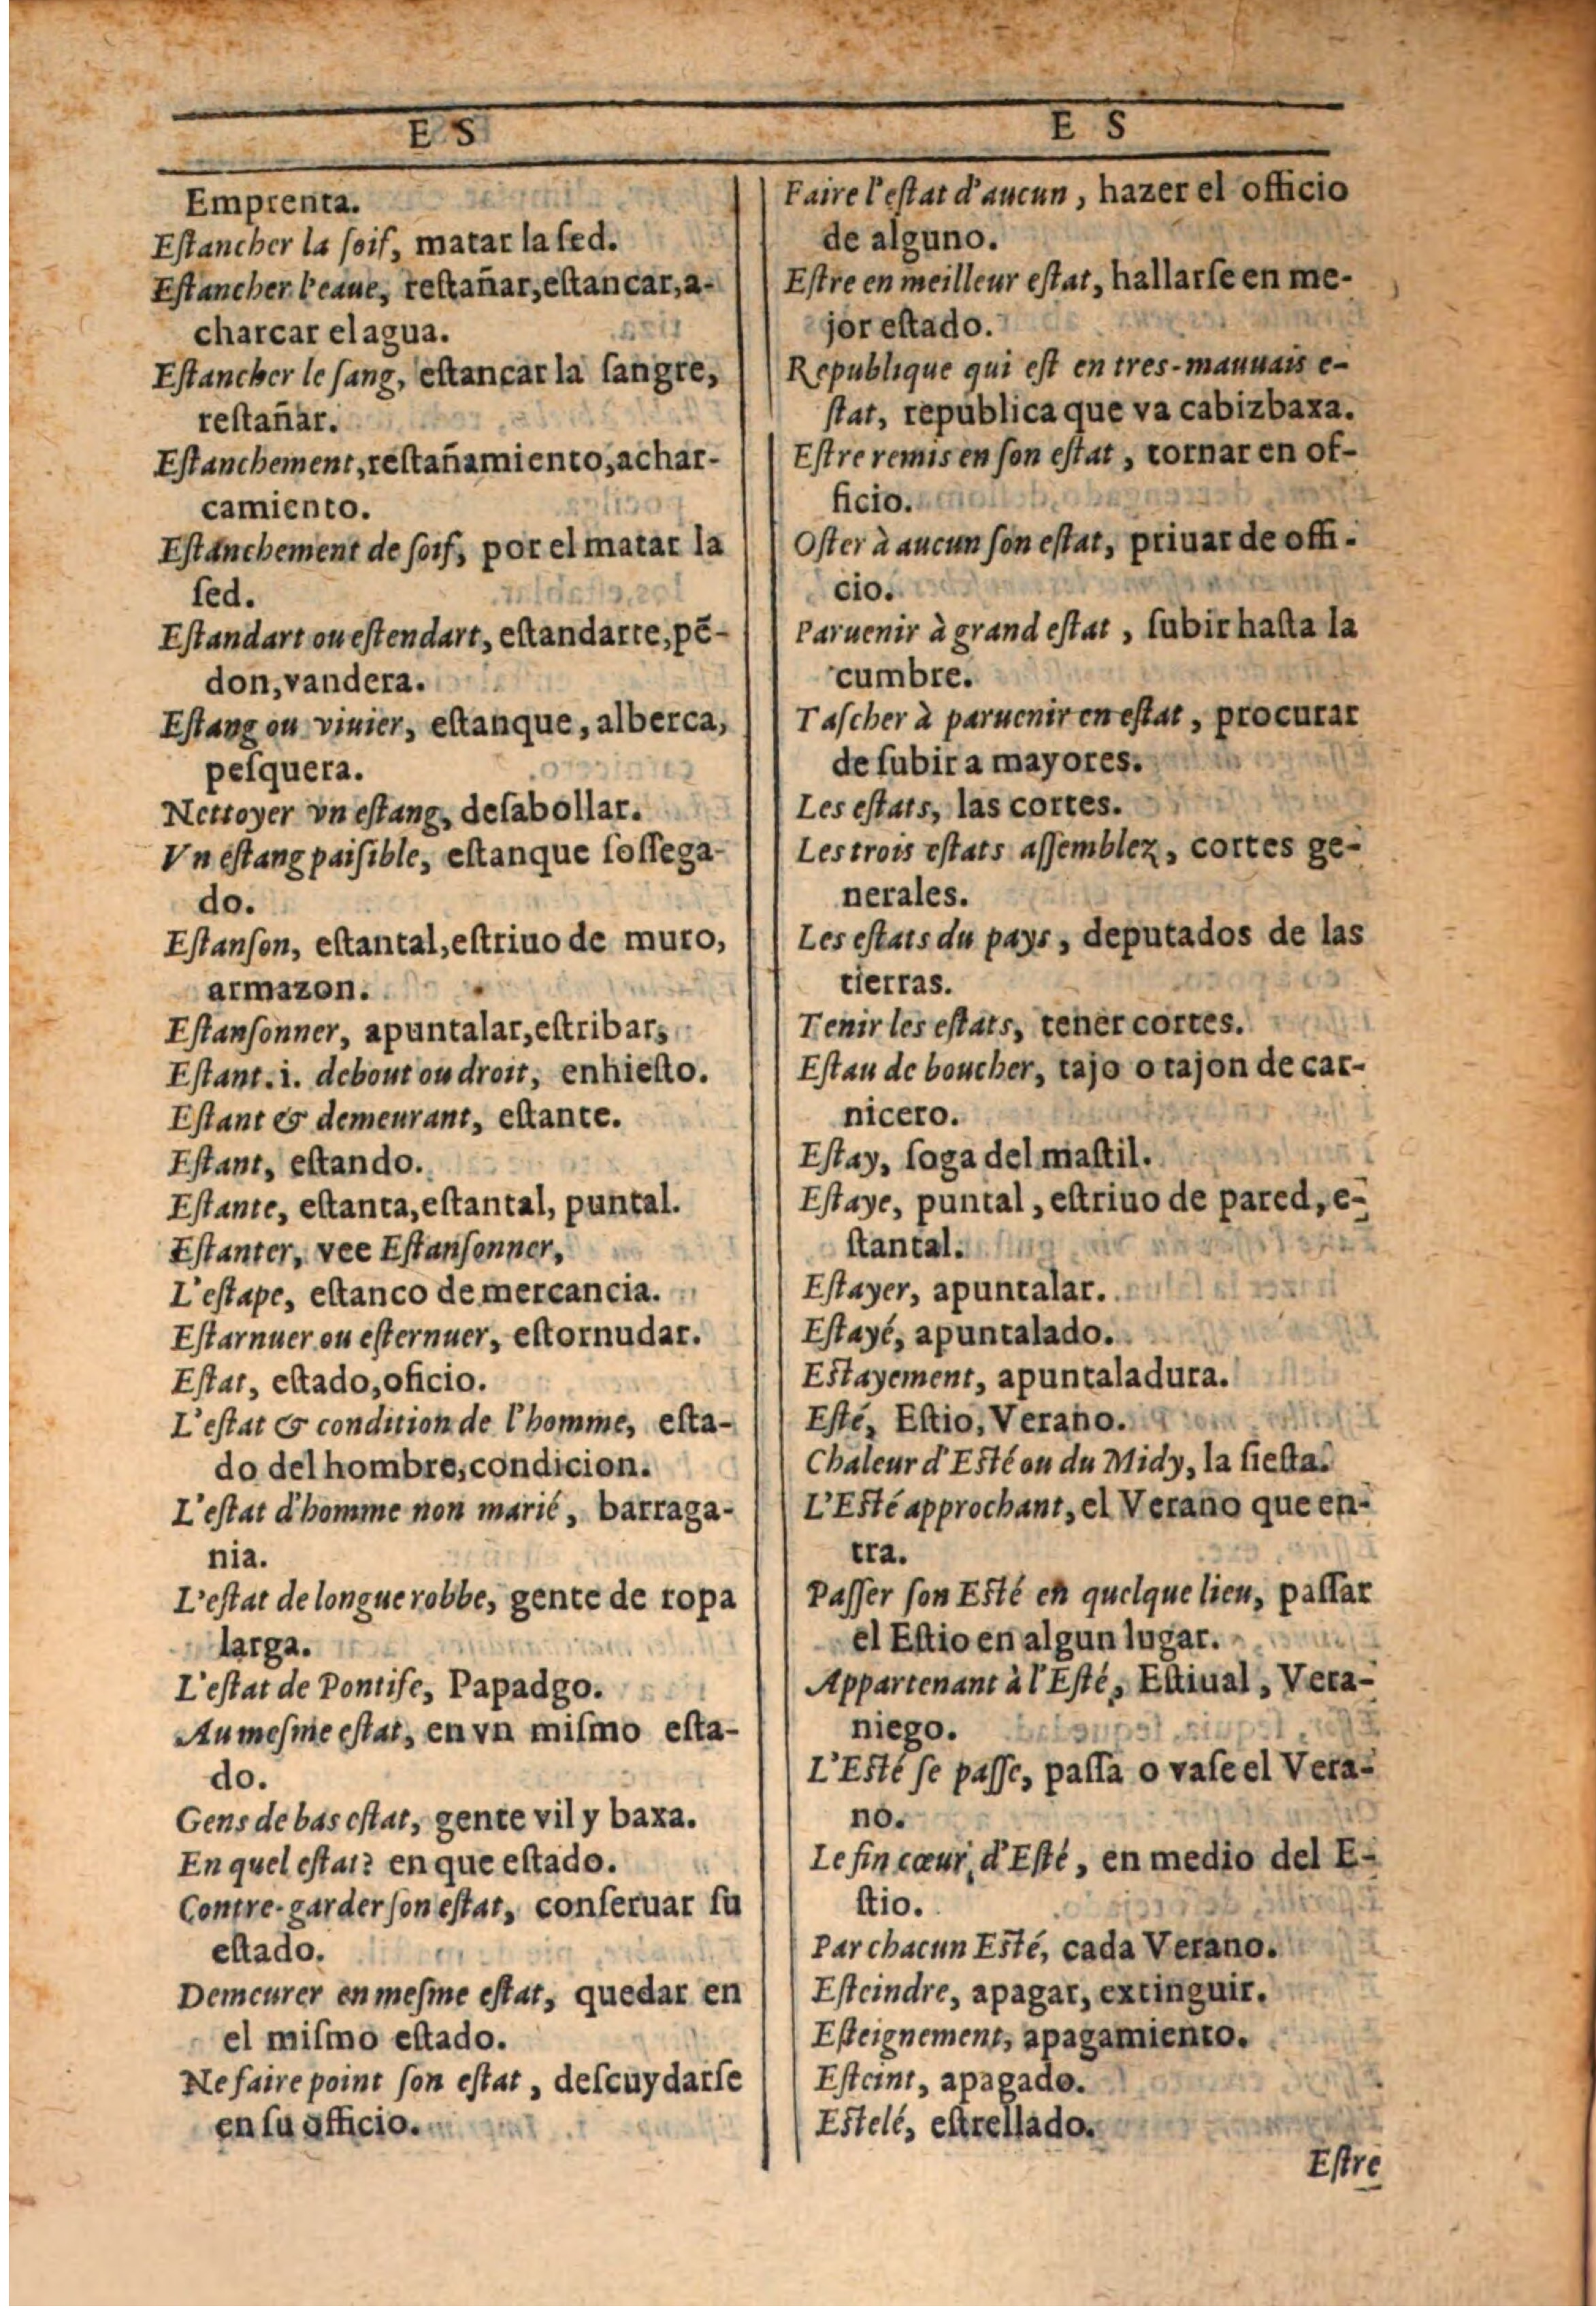 E S
Emprenta.
Eſtancher la ſoif, matar la ſed.
Eſtancher l'eaue, reſtañar, eſtancar, a-
charcar el agua.
Eſtancher le ſang, eſtancar la ſangre,
reſtañar.
Eſtanchement, reſtañamiento, achar-
camiento.
Eſtanchement de ſoif, por el matar la
ſed.
Eſtandart ou eſtendart, eſtandarte, pẽ-
don, vandera.
Eſtang ou viuier, eſtanque, alberca,
peſquera.
Nettoyer vn eſtang, deſabollar.
Vn eſtang paiſible, eſtanque ſoſſega-
do.
Eſtanſon, eſtantal, eſtriuo de muro,
armazon.
Eſtanſonner, apuntalar, eſtribar,
Eſtant. i. debout ou droit, enhieſto.
Eſtant & demeurant, eſtante.
Eſtant, eſtando.
Eſtante, eſtanta, eſtantal, puntal.
Eſtanter, vee Eſtanſonner,
L'eſtape, eſtanco de mercancia.
Eſtarnuer ou eſternuer, eſtornudar.
Eſtat, eſtado, oficio.
L'eſtat & condition de l'homme, eſta-
do del hombre, condicion.
L'eſtat d'homme non marié, barraga-
nia.
L'eſtat de longue robbe, gente de ropa
larga.
L'eſtat de Pontife, Papadgo.
Au meſme eſtat, en vn miſmo eſta-
do.
Gens de bas eſtat, gente vil y baxa.
En quel eſtat? en que eſtado.
Contre-garder ſon eſtat, conſeruar ſu
eſtado.
Demeurer en meſme eſtat, quedar en
el miſmo eſtado.
Ne faire point ſon eſtat, deſcuydarſe
en ſu officio.
E S
Faire l'eſtat d'aucun, hazer el officio
de alguno.
Eſtre en meilleur eſtat, hallarſe en me-
jor eſtado.
Republique qui eſt en tres-mauuais e-
ſtat, republica que va cabizbaxa.
Eſtre remis en ſon eſtat, tornar en of-
ficio.
Oſter à aucun ſon eſtat, priuar de offi-
cio.
Paruenir à grand eſtat, ſubir haſta la
cumbre.
Taſcher à paruenir en eſtat, procurar
de ſubir a mayores.
Les eſtats, las cortes.
Les trois eſtats aſſemblez, cortes ge-
nerales.
Les eſtats du pays, deputados de las
tierras.
Tenir les eſtats, tener cortes.
Eſtau de boucher, tajo o tajon de car-
nicero.
Eſtay, ſoga del maſtil.
Eſtaye, puntal, eſtriuo de pared, e-
ſtantal.
Eſtayer, apuntalar.
Eſtayé, apuntalado.
Eſtayement, apuntaladura.
Eſté, Eſtio, Verano.
Chaleur d'Eſté ou du Midy, la ſieſta.
L'Eſté approchant, el Verano que en-
tra.
Paſſer ſon Eſté en quelque lieu, paſſar
el Eſtio en algun lugar.
Appartenant à l'Eſté, Eſtiual, Vera-
niego.
L'Eſté ſe paſſe, paſſa o vaſe el Vera-
no.
Le fin cœur d'Eſté, en medio del E-
ſtio.
Par chacun Eſté, cada Verano.
Eſteindre, apagar, extinguir.
Eſteignement, apagamiento.
Eſteint, apagado.
Eſtelé, eſtrellado.
Eſtre